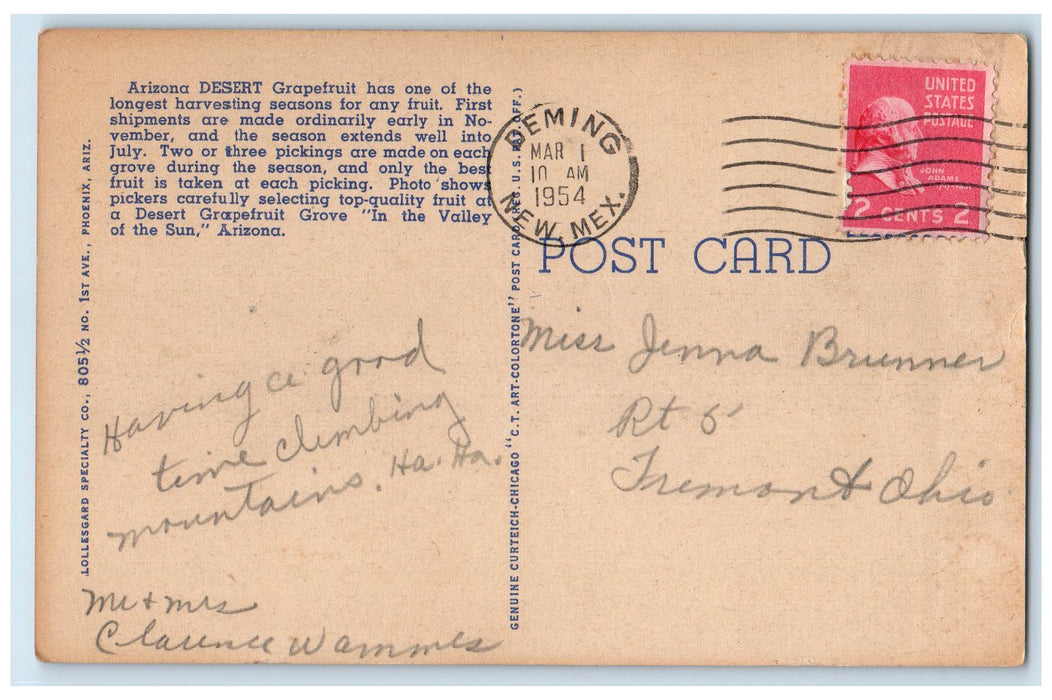 Arizona DESERT Grapefruit has one of the
longest harvesting seasons for any fruit. First
shipments are made ordinarily early in No-
vember, and the season extends well into
July. Two or three pickings are made on each
grove during the season, and only the best
fruit is taken at each picking. Photo shows
pickers carefully selecting top-quality fruit at
a Desert Grapefruit Grove "In the Valley
of the Sun," Arizona.
LOLLESGARD SPECIALTY CO., 805½ NO. 1ST AVE., PHOENIX, ARIZ.
Having a good
time climbing
mountains. Ha. Ha.
Mr + Mrs
Clarence Wammes
GENUINE CURTEICH-CHICAGO "C. T. ART-COLORTONE" POST CARD (REG. U.S. PAT. OFF.)
DEMING
MAR 1
10 AM
1954
NEW. MEX.
UNITED
STATES
POSTAGE
JOHN
ADAMS
2 CENTS 2
POST CARD
Miss Jenna Brunner
Rt 5
Fremont Ohio